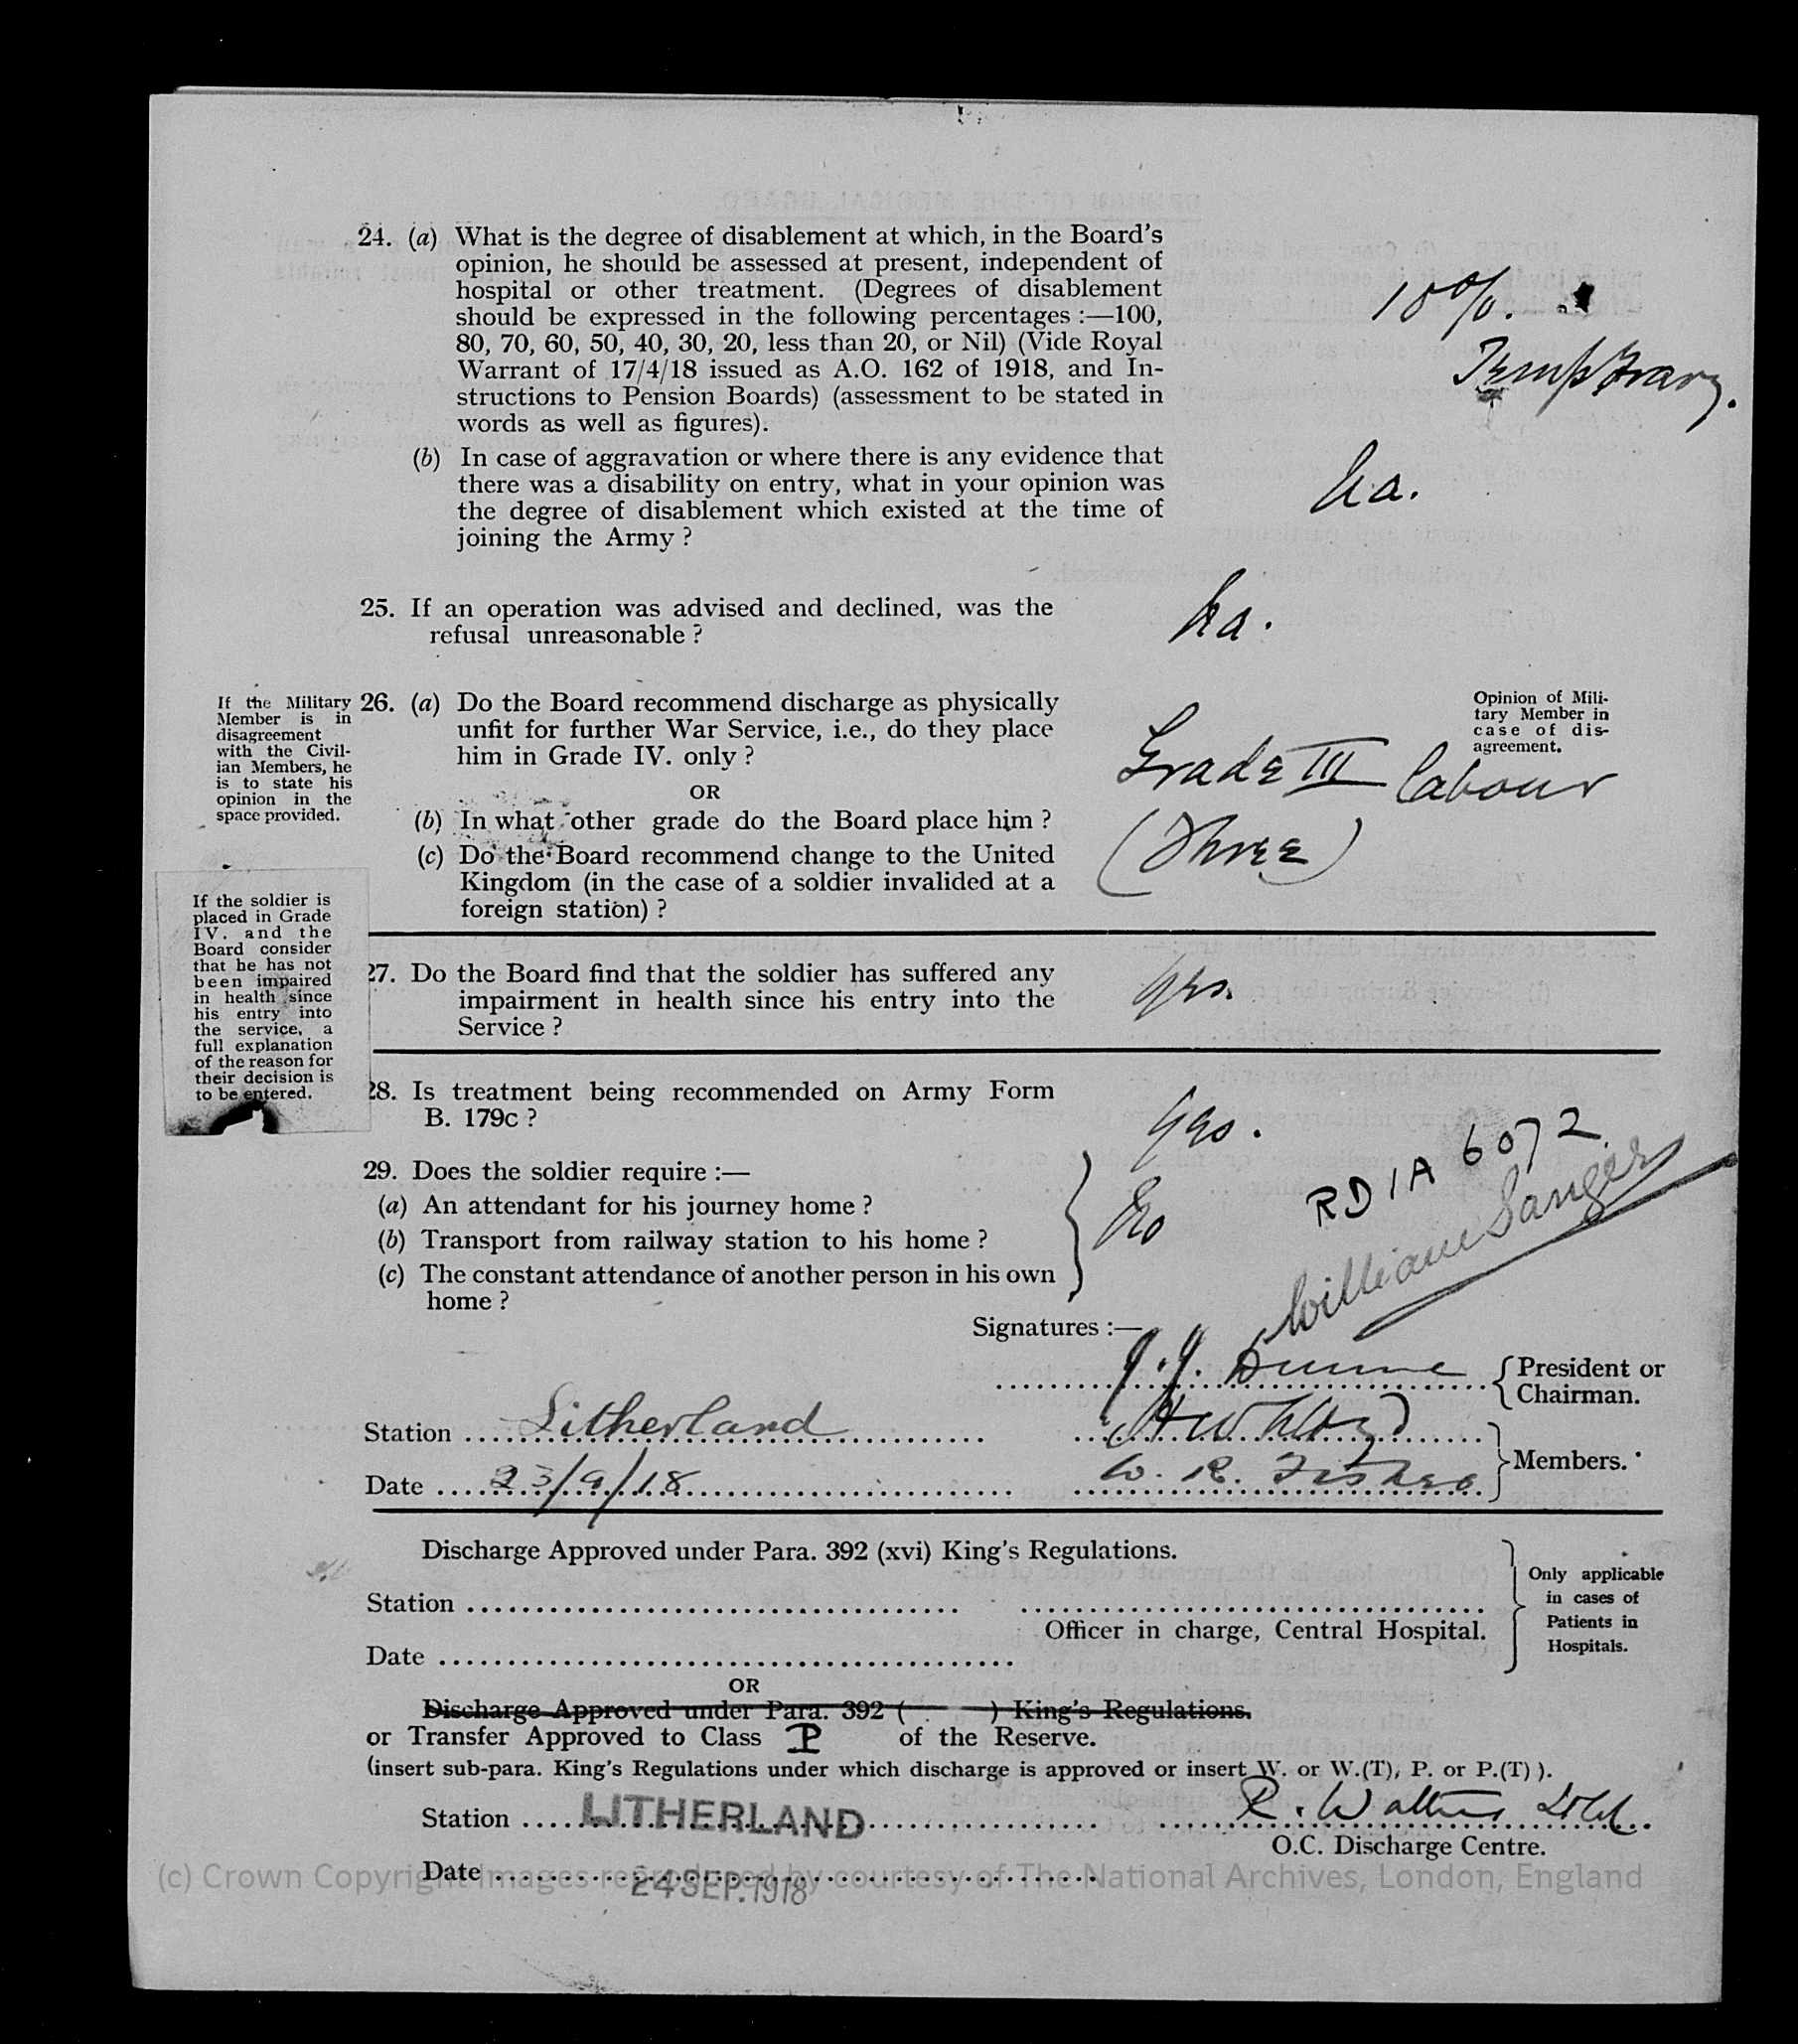 24. (a) What is the degree of disablement at which, in the Board's
opinion, he should be assessed at present, independent of
hospital or other treatment. (Degrees of disablement
should be expressed in the following percentages :—100,
80, 70, 60, 50, 40, 30, 20, less than 20, or Nil) (Vide Royal
Warrant of 17/4/18 issued as A.O. 162 of 1918, and In-
structions to Pension Boards) (assessment to be stated in
words as well as figures).
10%.
Temporary.
(b) In case of aggravation or where there is any evidence that
there was a disability on entry, what in your opinion was
the degree of disablement which existed at the time of
joining the Army ?
na.
25. If an operation was advised and declined, was the
refusal unreasonable ?
na.
If the Military
Member is in
disagreement
with the Civil-
ian Members, he
is to state his
opinion in the
space provided.
26. (a) Do the Board recommend discharge as physically
unfit for further War Service, i.e., do they place
him in Grade IV. only ?
OR
(b) In what other grade do the Board place him ?
(c) Do the Board recommend change to the United
Kingdom (in the case of a soldier invalided at a
foreign station) ?
Opinion of Mili-
tary Member in
case of dis-
agreement.
Grade III Labour
(Three)
If the soldier is
placed in Grade
IV. and the
Board consider
that he has not
been impaired
in health since
his entry into
the service, a
full explanation
of the reason for
their decision is
to be entered.
27. Do the Board find that the soldier has suffered any
impairment in health since his entry into the
Service ?
Yes.
28. Is treatment being recommended on Army Form
B. 179c ?
Yes.
29. Does the soldier require :—
(a) An attendant for his journey home ?
(b) Transport from railway station to his home ?
(c) The constant attendance of another person in his own
home ?
No
RD1A 6072
William Sangers
Signatures :—
J.J. Dunne
President or
Chairman.
Station Litherland
Members.
Date 23/9/18
W. R. Fisher
Discharge Approved under Para. 392 (xvi) King's Regulations.
Station
Officer in charge, Central Hospital.
Date
Only applicable
in cases of
Patients in
Hospitals.
OR
Discharge Approved under Para. 392 ( ) King's Regulations.
or Transfer Approved to Class P of the Reserve.
(insert sub-para. King's Regulations under which discharge is approved or insert W. or W.(T), P. or P.(T) ).
Station LITHERLAND
R. Walters
O.C. Discharge Centre.
Date 24 SEP. 1918
(c) Crown Copyright Images reproduced by courtesy of The National Archives, London, England